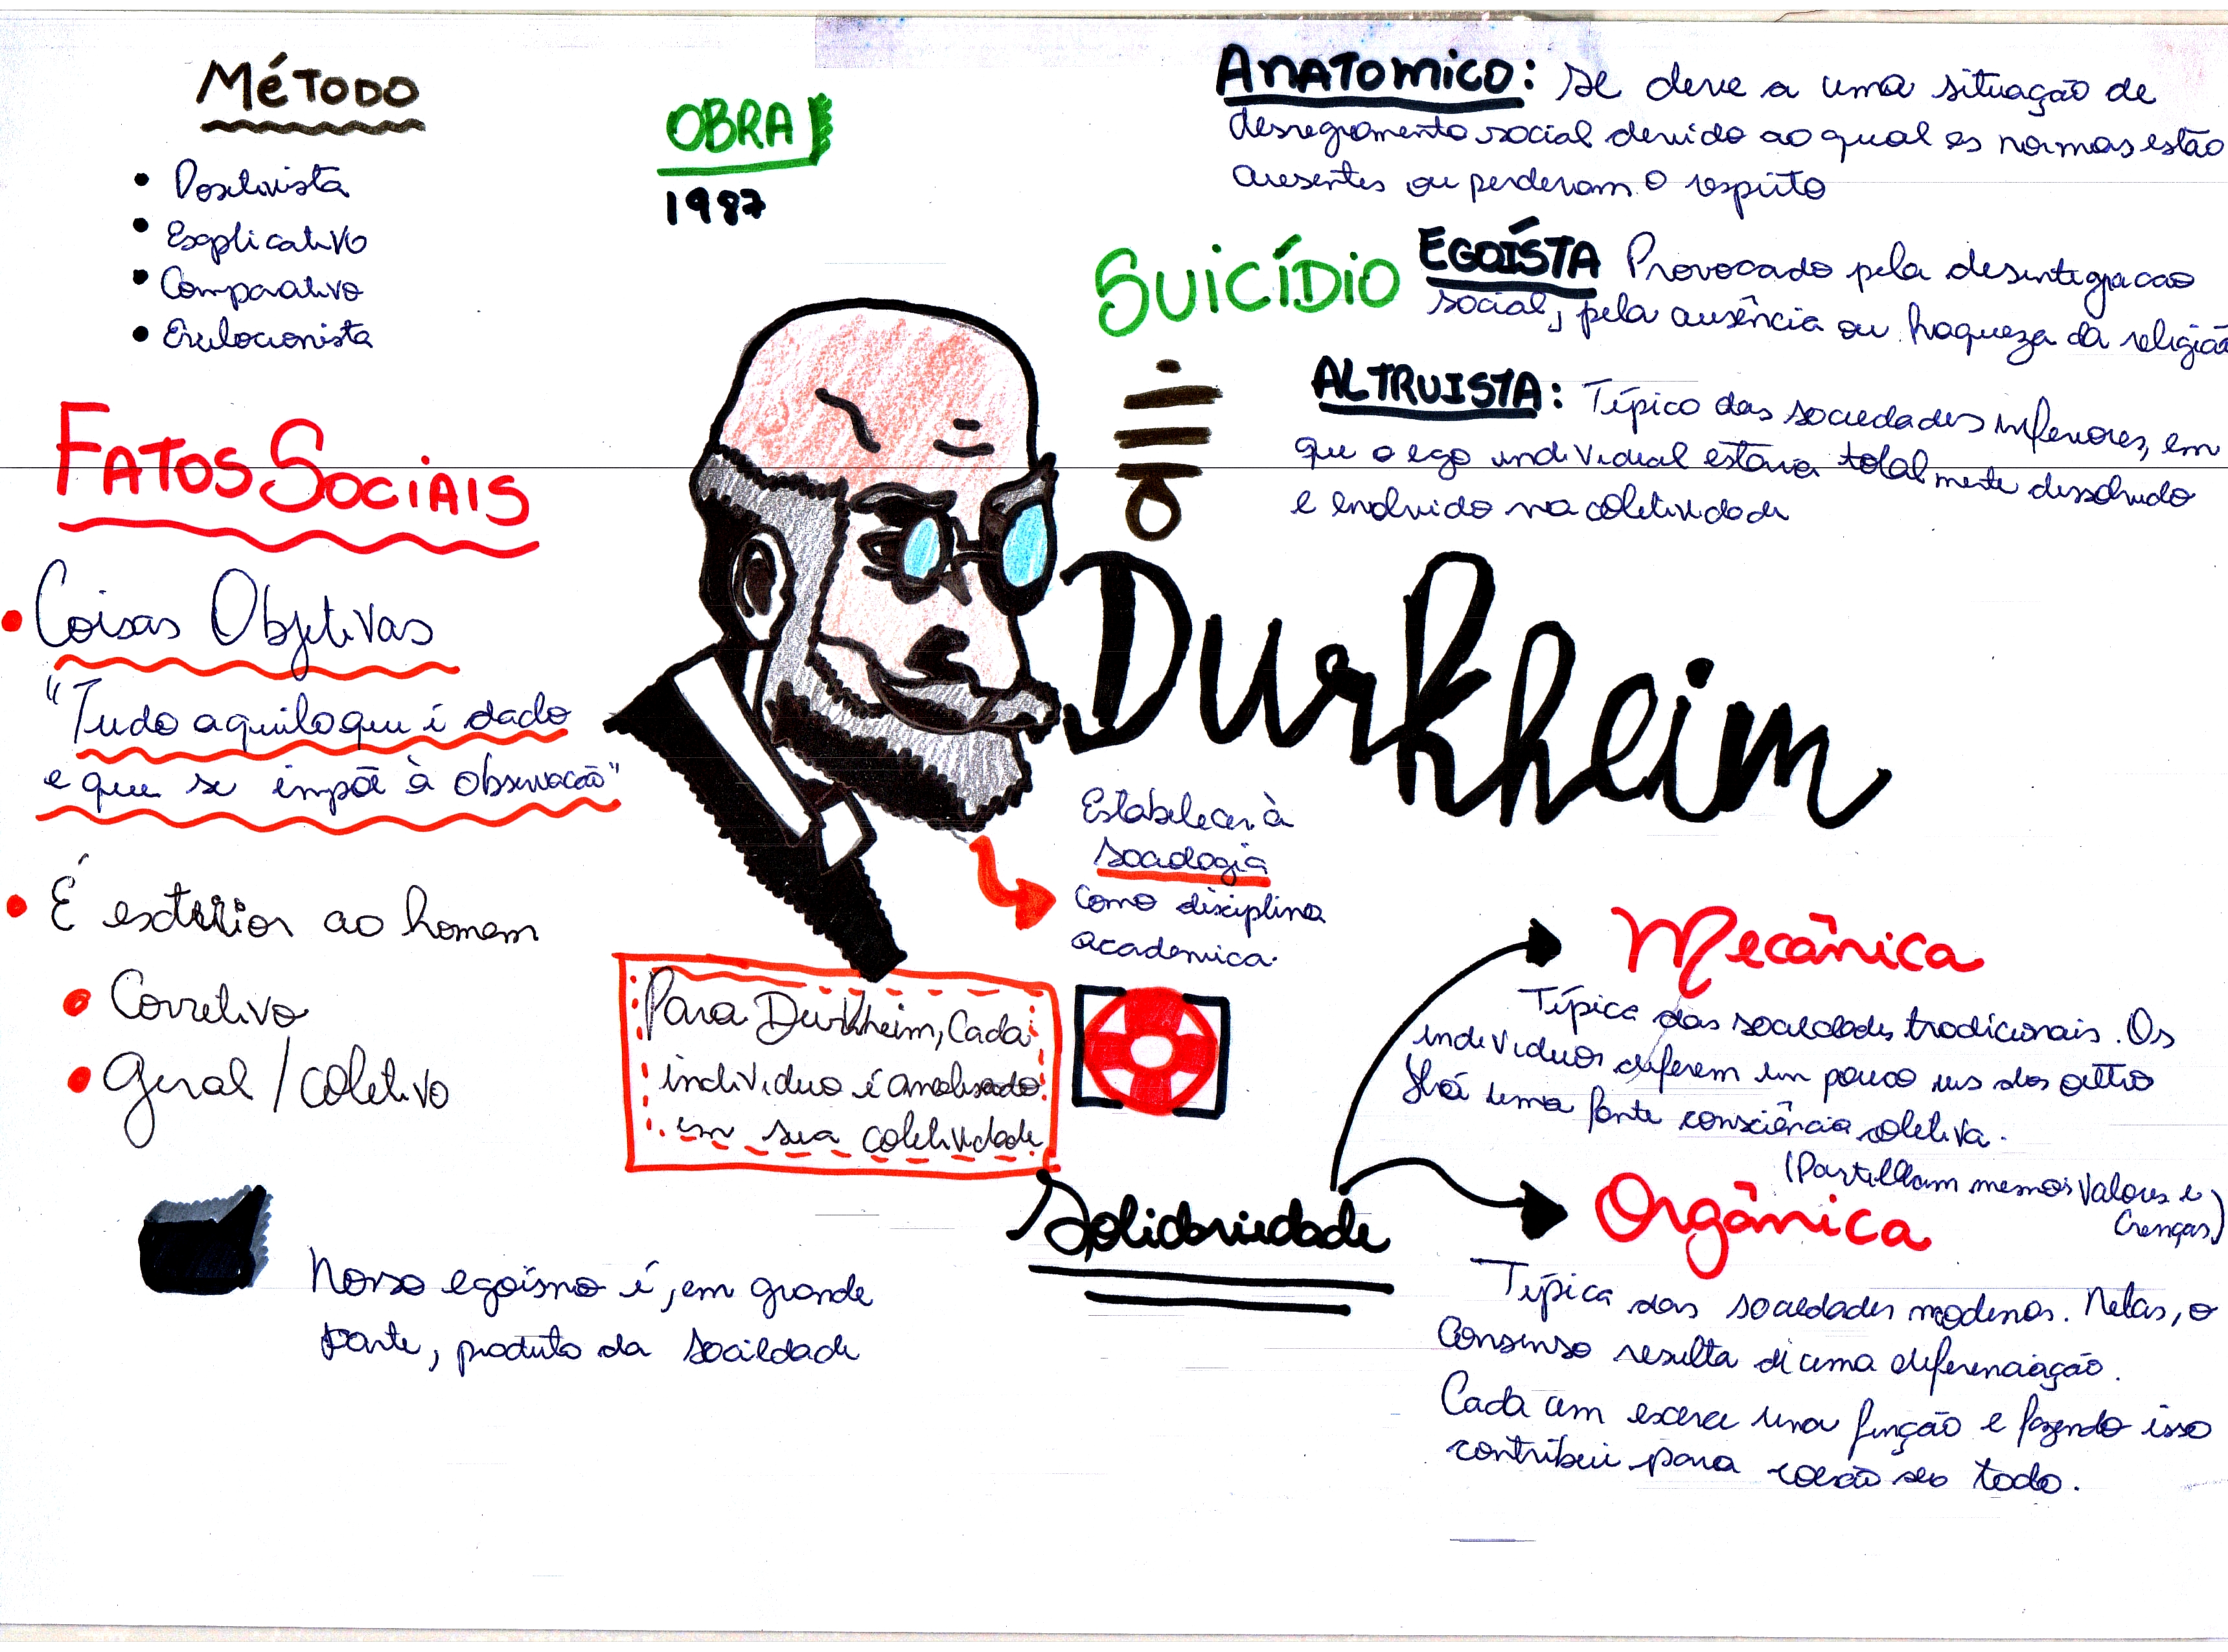 Método
• Positivista
• Explicativo
• Comparativo
• Evulocionista
OBRA
1987
Anatomico: se deve a uma situação de
desregramento social devido ao qual as normas estão
ausentes ou perderam o respeito
Suicídio
EGOÍSTA Provocado pela desintegracao
social, pela ausência ou fraqueza da religião
ALTRUISTA: Típico das sociedades inferiores, em
que o ego individual estava totalmente dissolvido
e envolvido na coletividade
Fatos Sociais
• Coisas Objetivas
"Tudo aquilo que é dado
e que se impõe à observacão"
• É exterior ao homem
• Corretivo
• Geral / coletivo
Durkheim
Estabelecer à
sociologia
como disciplina
academica.
Para Durkheim, Cada
individuo é analisado
em sua coletividade
Nosso egoísmo é, em grande
parte, produto da sociedade
Solidariedade
Mecânica
Típica das sociedades tradicionais. Os
individuos diferem um pouco uns dos outro
Há uma forte consciência coletiva.
(Partilham mesmos valores e
crenças)
Orgânica
Típica das sociedades modernas. Nelas, o
consenso resulta di uma diferenciação.
Cada um exerce uma função e fazendo isso
contribui para coesão seo todo.